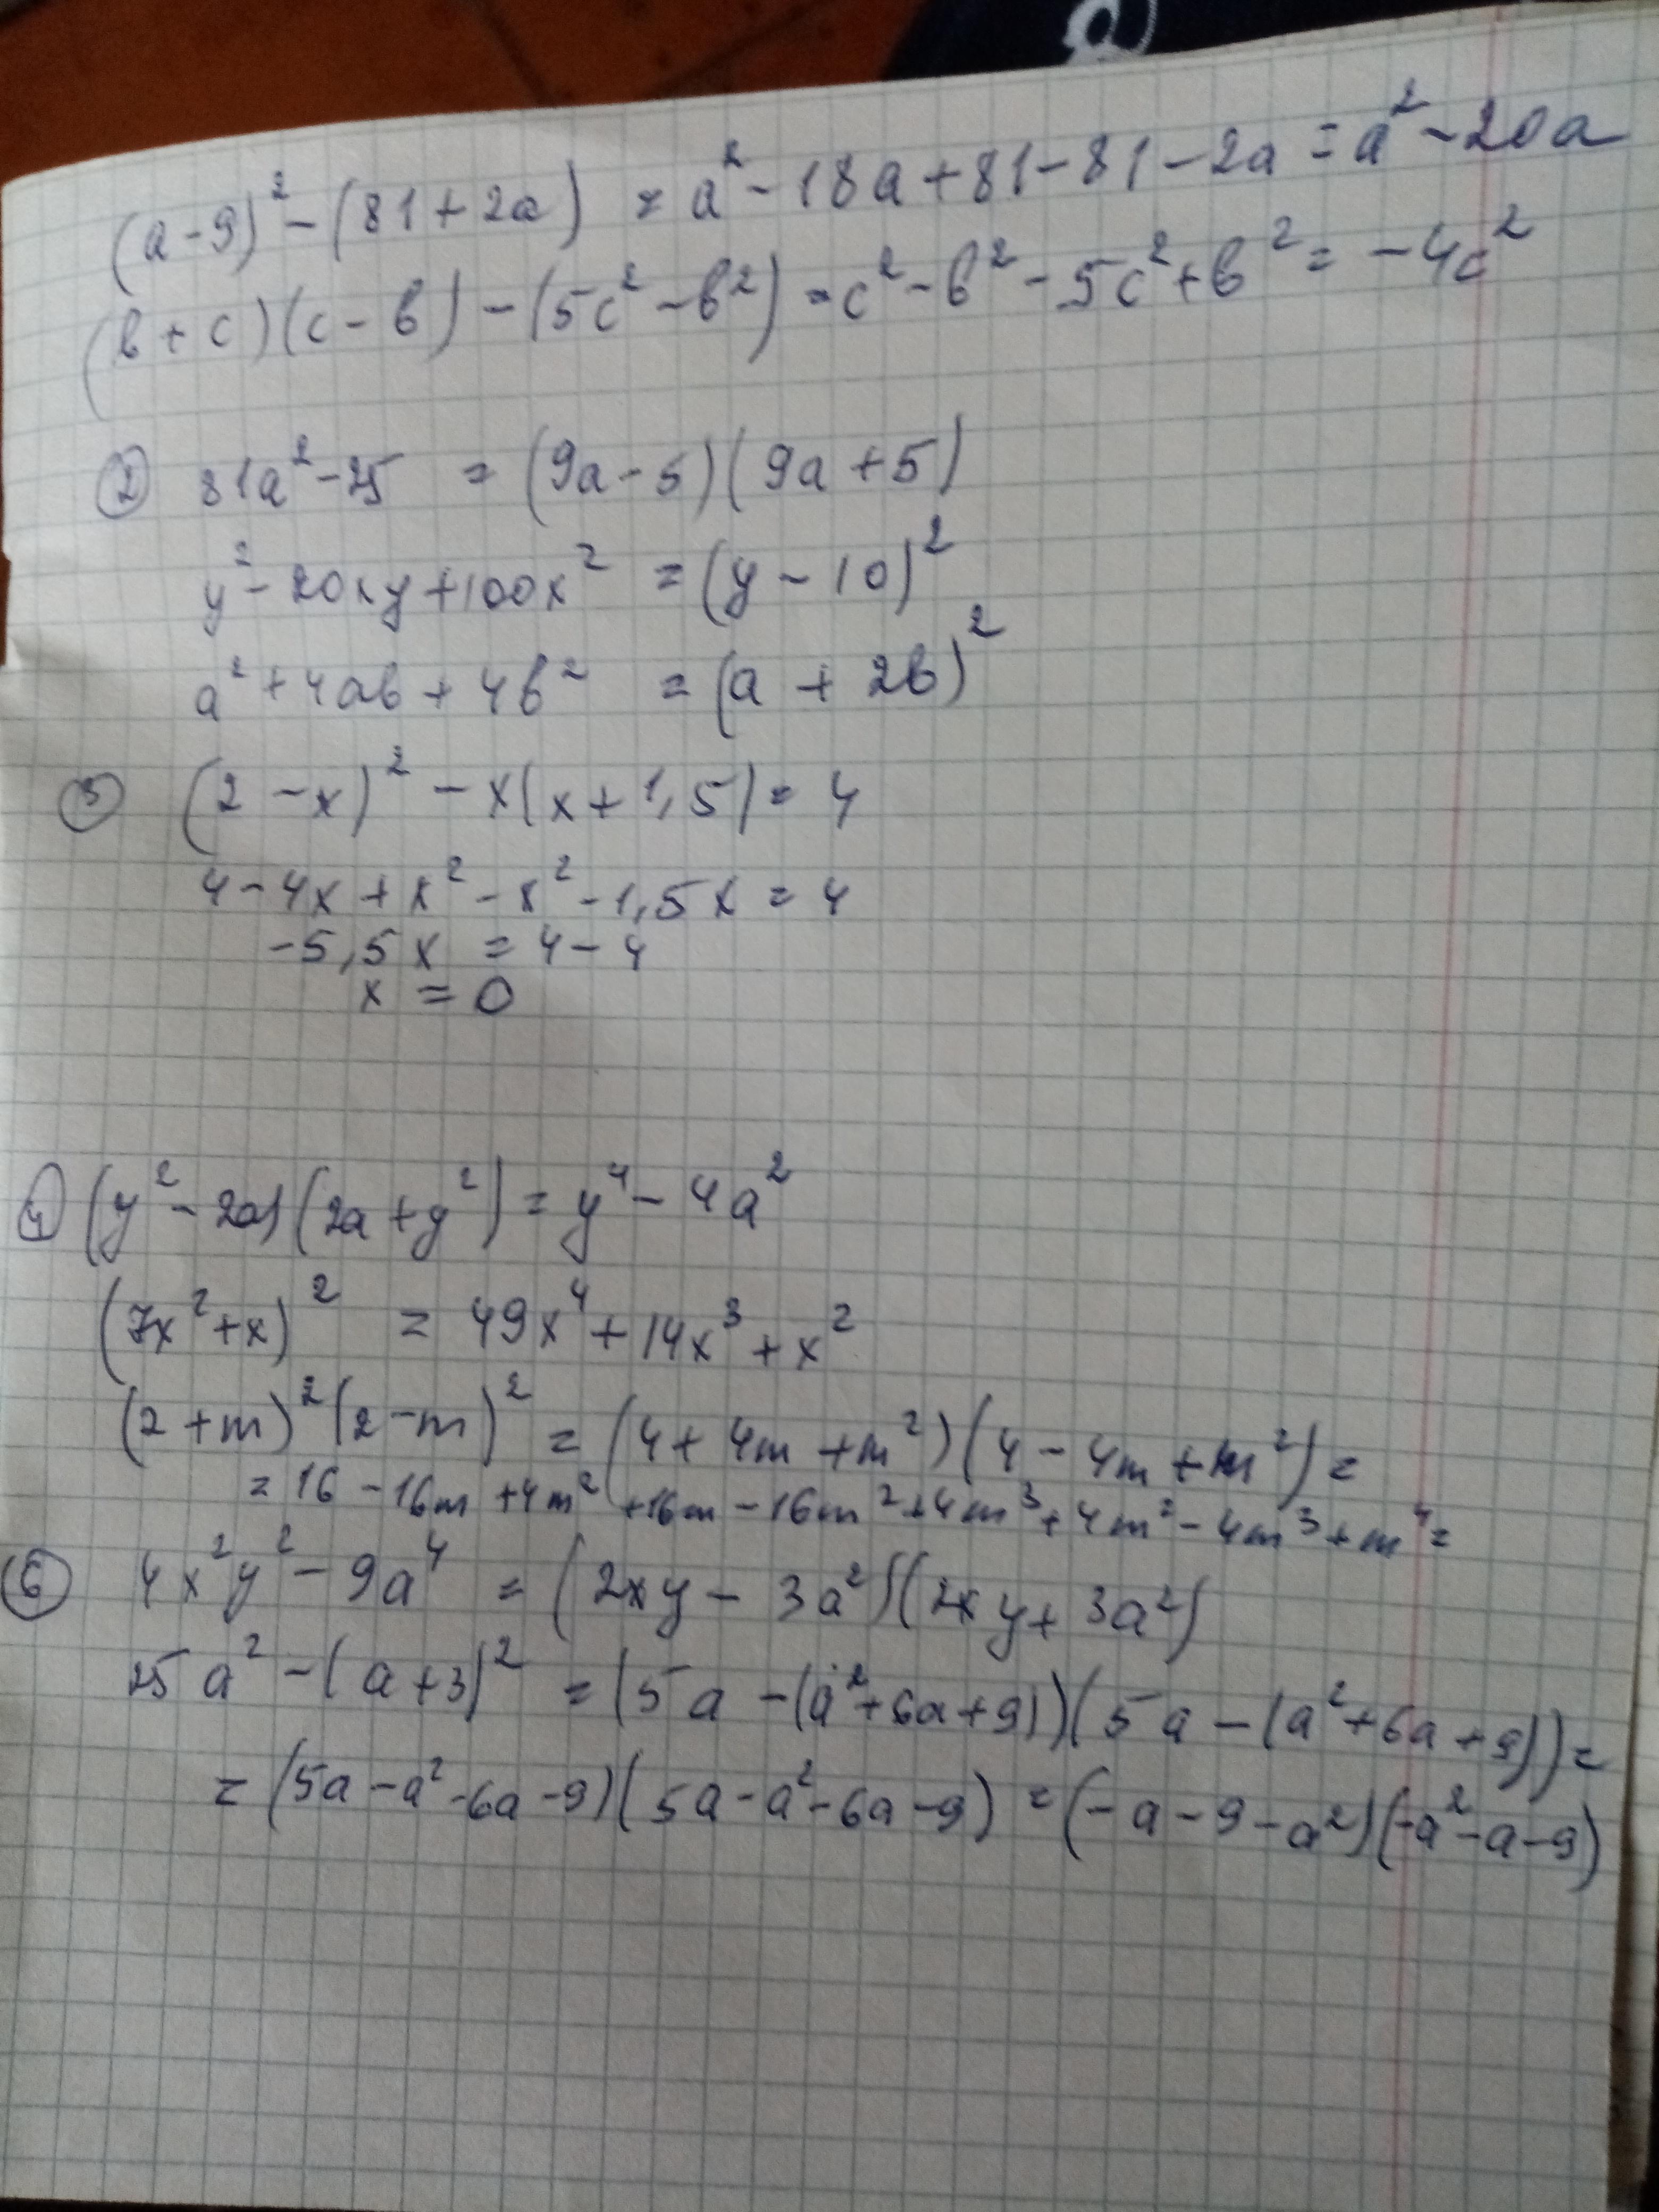 (a-9)² - (81+2a) = a² - 18a + 81 - 81 - 2a = a² - 20a
(в + c)(c - в) - (5c² - в²) = c² - в² - 5c² + в² = -4c²
② 81a² - 25 = (9a - 5)(9a + 5)
y² - 20xy + 100x² = (y - 10)²
a² + 4aв + 4в² = (a + 2в)²
③ (2 - x)² - x(x + 1,5) = 4
4 - 4x + x² - x² - 1,5x = 4
-5,5x = 4 - 4
x = 0
④ (y² - 2a)(2a + y²) = y⁴ - 4a²
(7x² + x)² = 49x⁴ + 14x³ + x²
(2 + m)²(2 - m)² = (4 + 4m + m²)(4 - 4m + m²) =
= 16 - 16m + 4m² + 16m - 16m² + 4m³ + 4m² - 4m³ + m⁴ =
⑥ 4x²y² - 9a⁴ = (2xy - 3a²)(2xy + 3a²)
25a² - (a + 3)² = (5a - (a² + 6a + 9))(5a - (a² + 6a + 9)) =
= (5a - a² - 6a - 9)(5a - a² - 6a - 9) = (-a - 9 - a²)(-a² - a - 9)